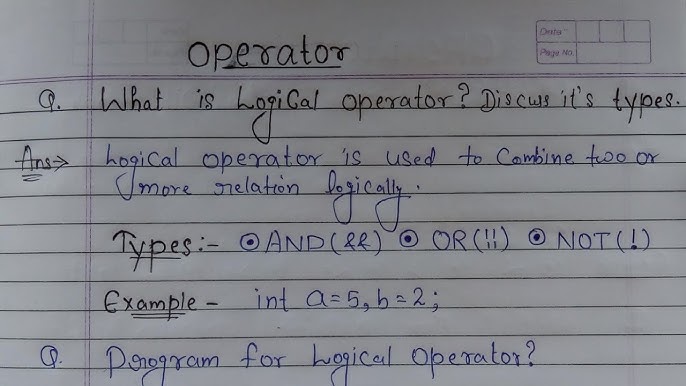 Operator
Date
Page No.
Q. What is Logical operator? Discuss it's types.
Ans→ Logical operator is used to Combine two or
more relation logically.
Types:- ⊙ AND(&&) ⊙ OR(!!) ⊙ NOT(!)
Example - int a=5, b=2;
Q. Program for Logical Operator?